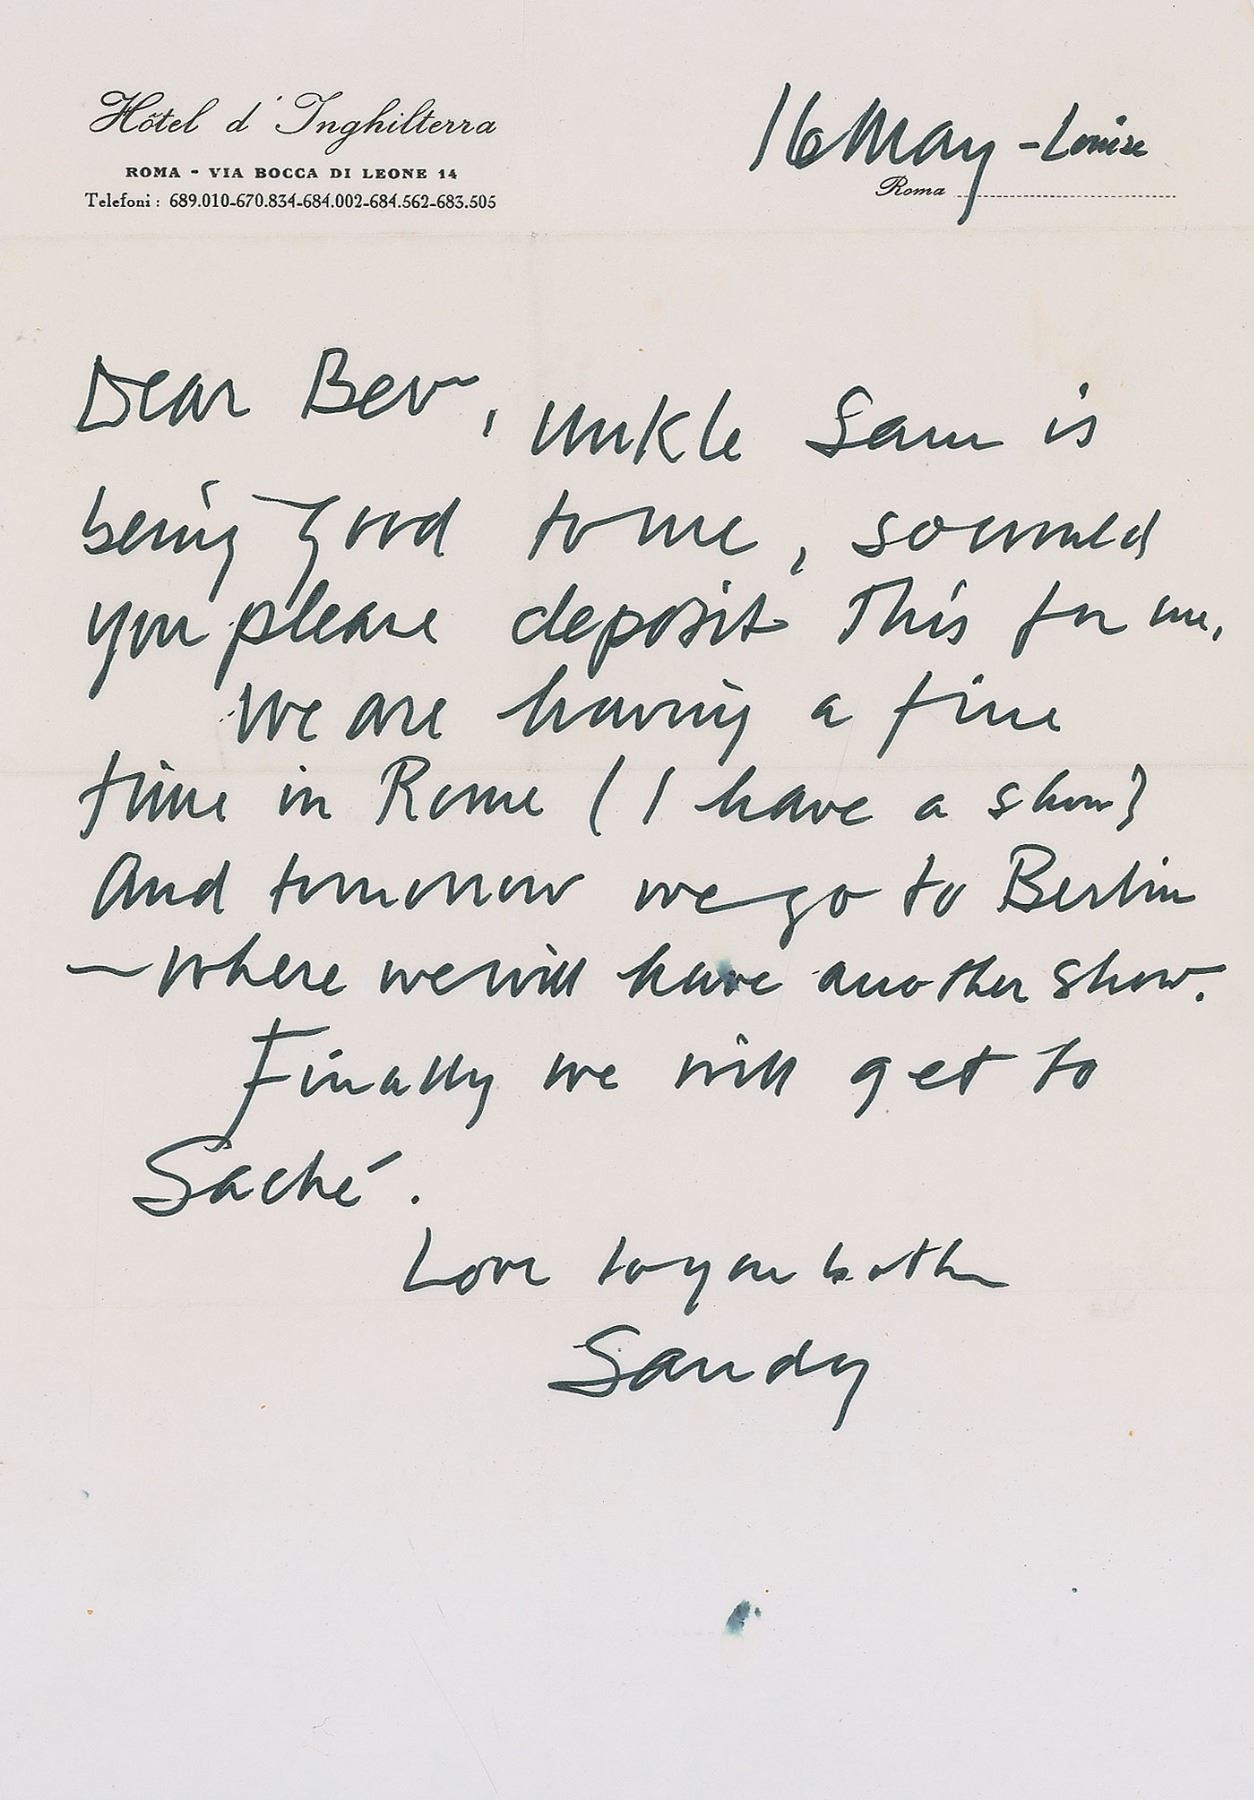 Hôtel d'Inghilterra
ROMA - VIA BOCCA DI LEONE 14
Telefoni : 689.010-670.834-684.002-684.562-683.505
16 May - Louise
Roma
Dear Bev, Unkle Sam is
being good to me, so would
you please deposit This for me.
We are having a fine
time in Rome (I have a show)
And tomorrow we go to Berlin
- where we will have another show.
Finally we will get to
Saché.
Love to you both
Sandy